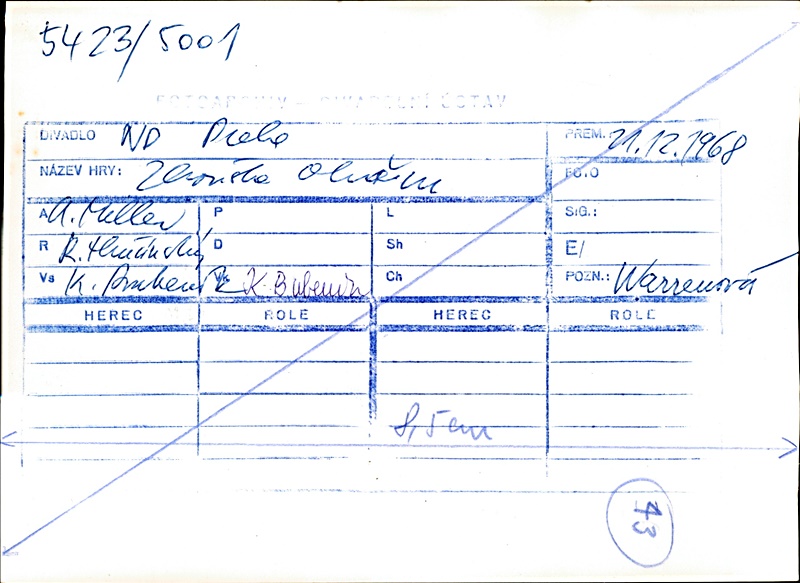 5423/5001
FOTOARCHIV – DIVADELNÍ ÚSTAV
DIVADLO ND Praha PREM. 21.12.1968
NÁZEV HRY: Zkouška FOTO
A A. Miller P L SIG.:
R R. Hrušínský D Sh E/
Vs K. Vk K. Bubeník Ch POZN.: Warrenová
HEREC ROLE HEREC ROLE
8,5 cm
43